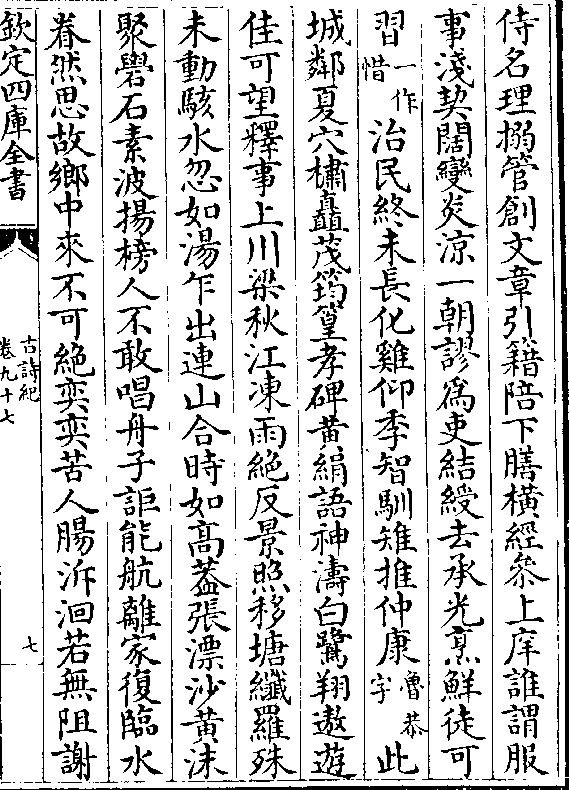 侍名理搦管創文章引籍陪下膳橫經叅上庠誰謂服
事淺契闊變炎涼一朝謬為吏結綬去承光烹鮮徒可
習一作惜治民終未長化雞仰季智馴雉推仲康魯恭字此
城鄰夏穴檽矗茂筠篁孝碑黄絹語神濤白鷺翔遨遊
佳可望釋事上川梁秋江凍雨絶反景照移塘纖羅殊
未動駭水忽如湯乍出連山合時如高葢張漂沙黄沫
聚礐石素波揚榜人不敢唱舟子詎能航離家復臨水
眷然思故鄉中來不可絶奕奕苦人腸泝洄若無阻謝
欽定四庫全書
古詩紀
卷九十七
七